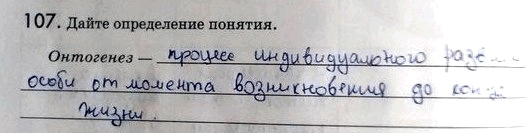 107. Дайте определение понятия.
Онтогенез — процесс индивидуального
особи от момента возникновения до
жизни.